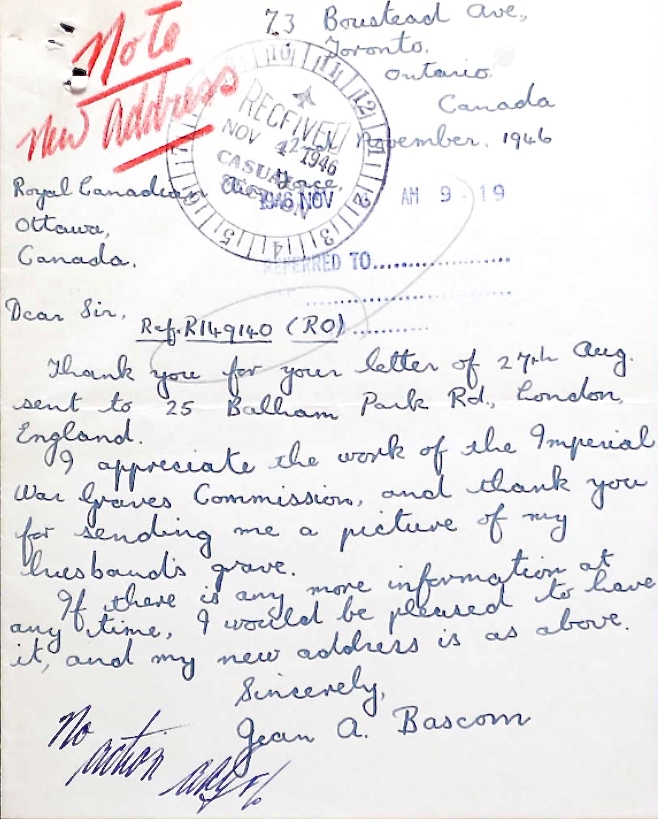 Note
New Address
73 Boustead Ave.,
Toronto.
Ontario.
Canada
November, 1946
RECEIVED
NOV 1946
1946 NOV
AM 9 19
Royal Canadian
Ottawa,
Canada.
REFERRED TO
Dear Sir,
Ref. R149140 (RO)
Thank you for your letter of 27th Aug.
sent to 25 Balham Park Rd., London,
England.
I appreciate the work of the Imperial
War Graves Commission, and thank you
for sending me a picture of my
husband's grave.
If there is any more information at
any time, I would be pleased to have
it, and my new address is as above.
Sincerely,
Jean A. Bascom
No
action